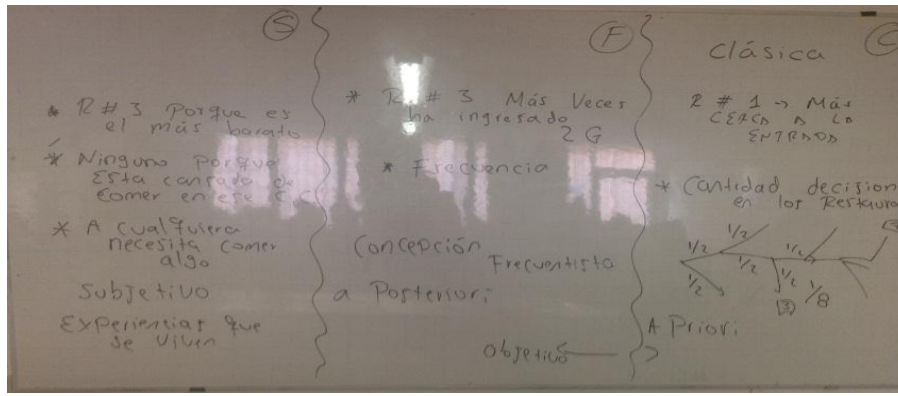 S
* R#3 Porque es
el más barato
* Ninguno porque
Esta cansado de
comer en ese C.C
* A cualquiera
necesita comer
algo
Subjetivo
Experiencias que
se viven
F
* R#3 Más Veces
ha ingresado
2 G
* Frecuencia
Concepción
Frecuentista
a Posteriori
Objetivo
Clásica
C
R#1 → Más
CERCA A LA
ENTRADA
* Cantidad decision
en los Restaura
1/2 1/2
1/2 1/2 1/2
1/8
3
A Priori